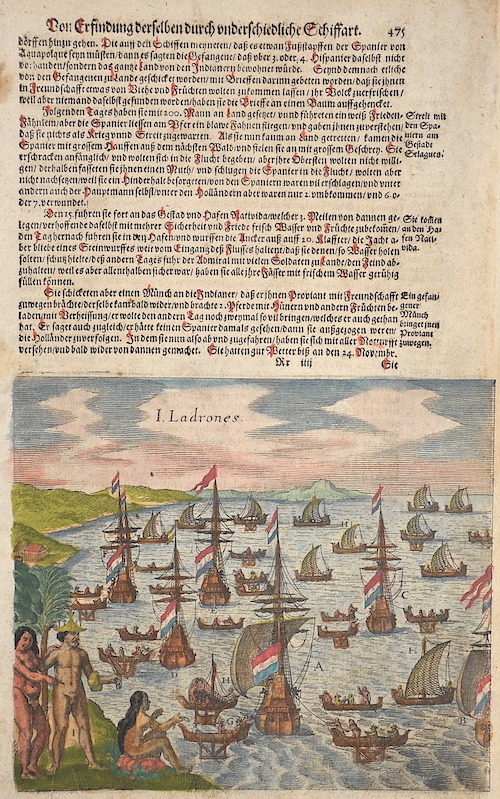 Von Erfindung derselben durch vnderschiedliche Schiffart. 475
dörffen hinzu gehen. Die auff den Schiffen meyneten / daß es etwan Fußstapffen der Spanier von
Aquapolque seyn müsten / dann es sagten die Gefangene / daß vber 3. oder 4. Hispanier daselbst nicht
vorhanden / sondern das gantze Land von den Indianern bewohnt würde. Seynd demnach etliche
von den Gefangenen zu Lande geschickt worden / mit Brieffen darinn gebeten worden / daß sie jhnen
in Freundschafft etwas von Viehe vnd Früchten wolten zukommen lassen / jhr Volck zuerfrischen /
weil aber niemand daselbst gefunden worden / haben sie die Brieffe an einen Baum auffgehencket.
Folgenden Tags haben sie mit 200. Mann an Land gesetzt / vnnd führeten ein weiß Frieden-
Fähnlein / aber die Spanier liessen am Pfer ein blawe Fahnen fliegen / vnd gaben jhnen zuverstehen /
daß sie nichts als Krieg vnnd Streit zugewarten. Als sie nun kaum an Land getretten / kamen die
Spanier mit grossem Hauffen auß dem nächsten Wald / vnd fielen sie an mit grossem Geschrey. Sie
erschracken anfänglich / vnd wolten sich in die Flucht begeben / aber jhre Obersten wolten nicht willi-
gen / derhalben fasseten sie jhnen einen Muth / vnd schlugen die Spanier in die Flucht / wolten aber
nicht nachsetzen weil sie ein Hinderhalt besorgeten / von den Spaniern waren vil erschlagen / vnd vnter
andern auch der Hauptmann selbst / vnter den Holländern aber waren nur 2. vmbkommen / vnd 6. o-
der 7. verwundet.
Streit mit
den Spa-
niern am
Gestade
Selagues.
Den 15. fuhren sie fort an das Gestad vnd Hafen Natividad welcher 3. Meilen von dannen ge-
legen / verhoffende daselbst mit mehrer Sicherheit vnd Friede frisch Wasser vnd Früchte zubekommen /
den Tag hernach fuhren sie in den Hafen / vnd wurffen die Ancker auß auff 20. Klaffter / die Jacht a-
ber bliebe eines Steinwurffes weit von Eingang deß Flusses halten / daß sie denen / so Wasser holen
solten / schutz hielte / deß andern Tags fuhr der Admiral mit vielen Soldaten zu Lande / den Feind ab-
zuhalten / weil es aber allenthalben sicher war / haben sie alle jhre Fässer mit frischem Wasser gerühig
füllen können.
Sie kommen
an den Ha-
fen Nati-
vida.
Sie schickten aber einen Münch an die Indianer / daß er jhnen Proviant mit Freundschafft
zuwegen brächte / derselbe kam bald wider / vnd brachte 2. Pferde mit Hünern vnd andern Früchten be-
laden mit Verheissung / er wolte den andern Tag noch zweymal so vil bringen / welches er auch gethan
hat. Er sagte auch zugleich / er hätte keinen Spanier damals gesehen / dann sie außgezogen weren /
die Holländer zuverfolgen. In dem sie nun also ab vnd zugefahren / haben sie sich mit aller Notturfft
versehen / vnd bald wider von dannen gemachet. Sie hatten gut Wetter biß an den 24. Novembr.
Ein gefan-
gener
Münch
bringet jnen
Proviant
zuwegen.
Rr iiij
Sie
I. Ladrones.
H
C
A
H
D
H
G
B